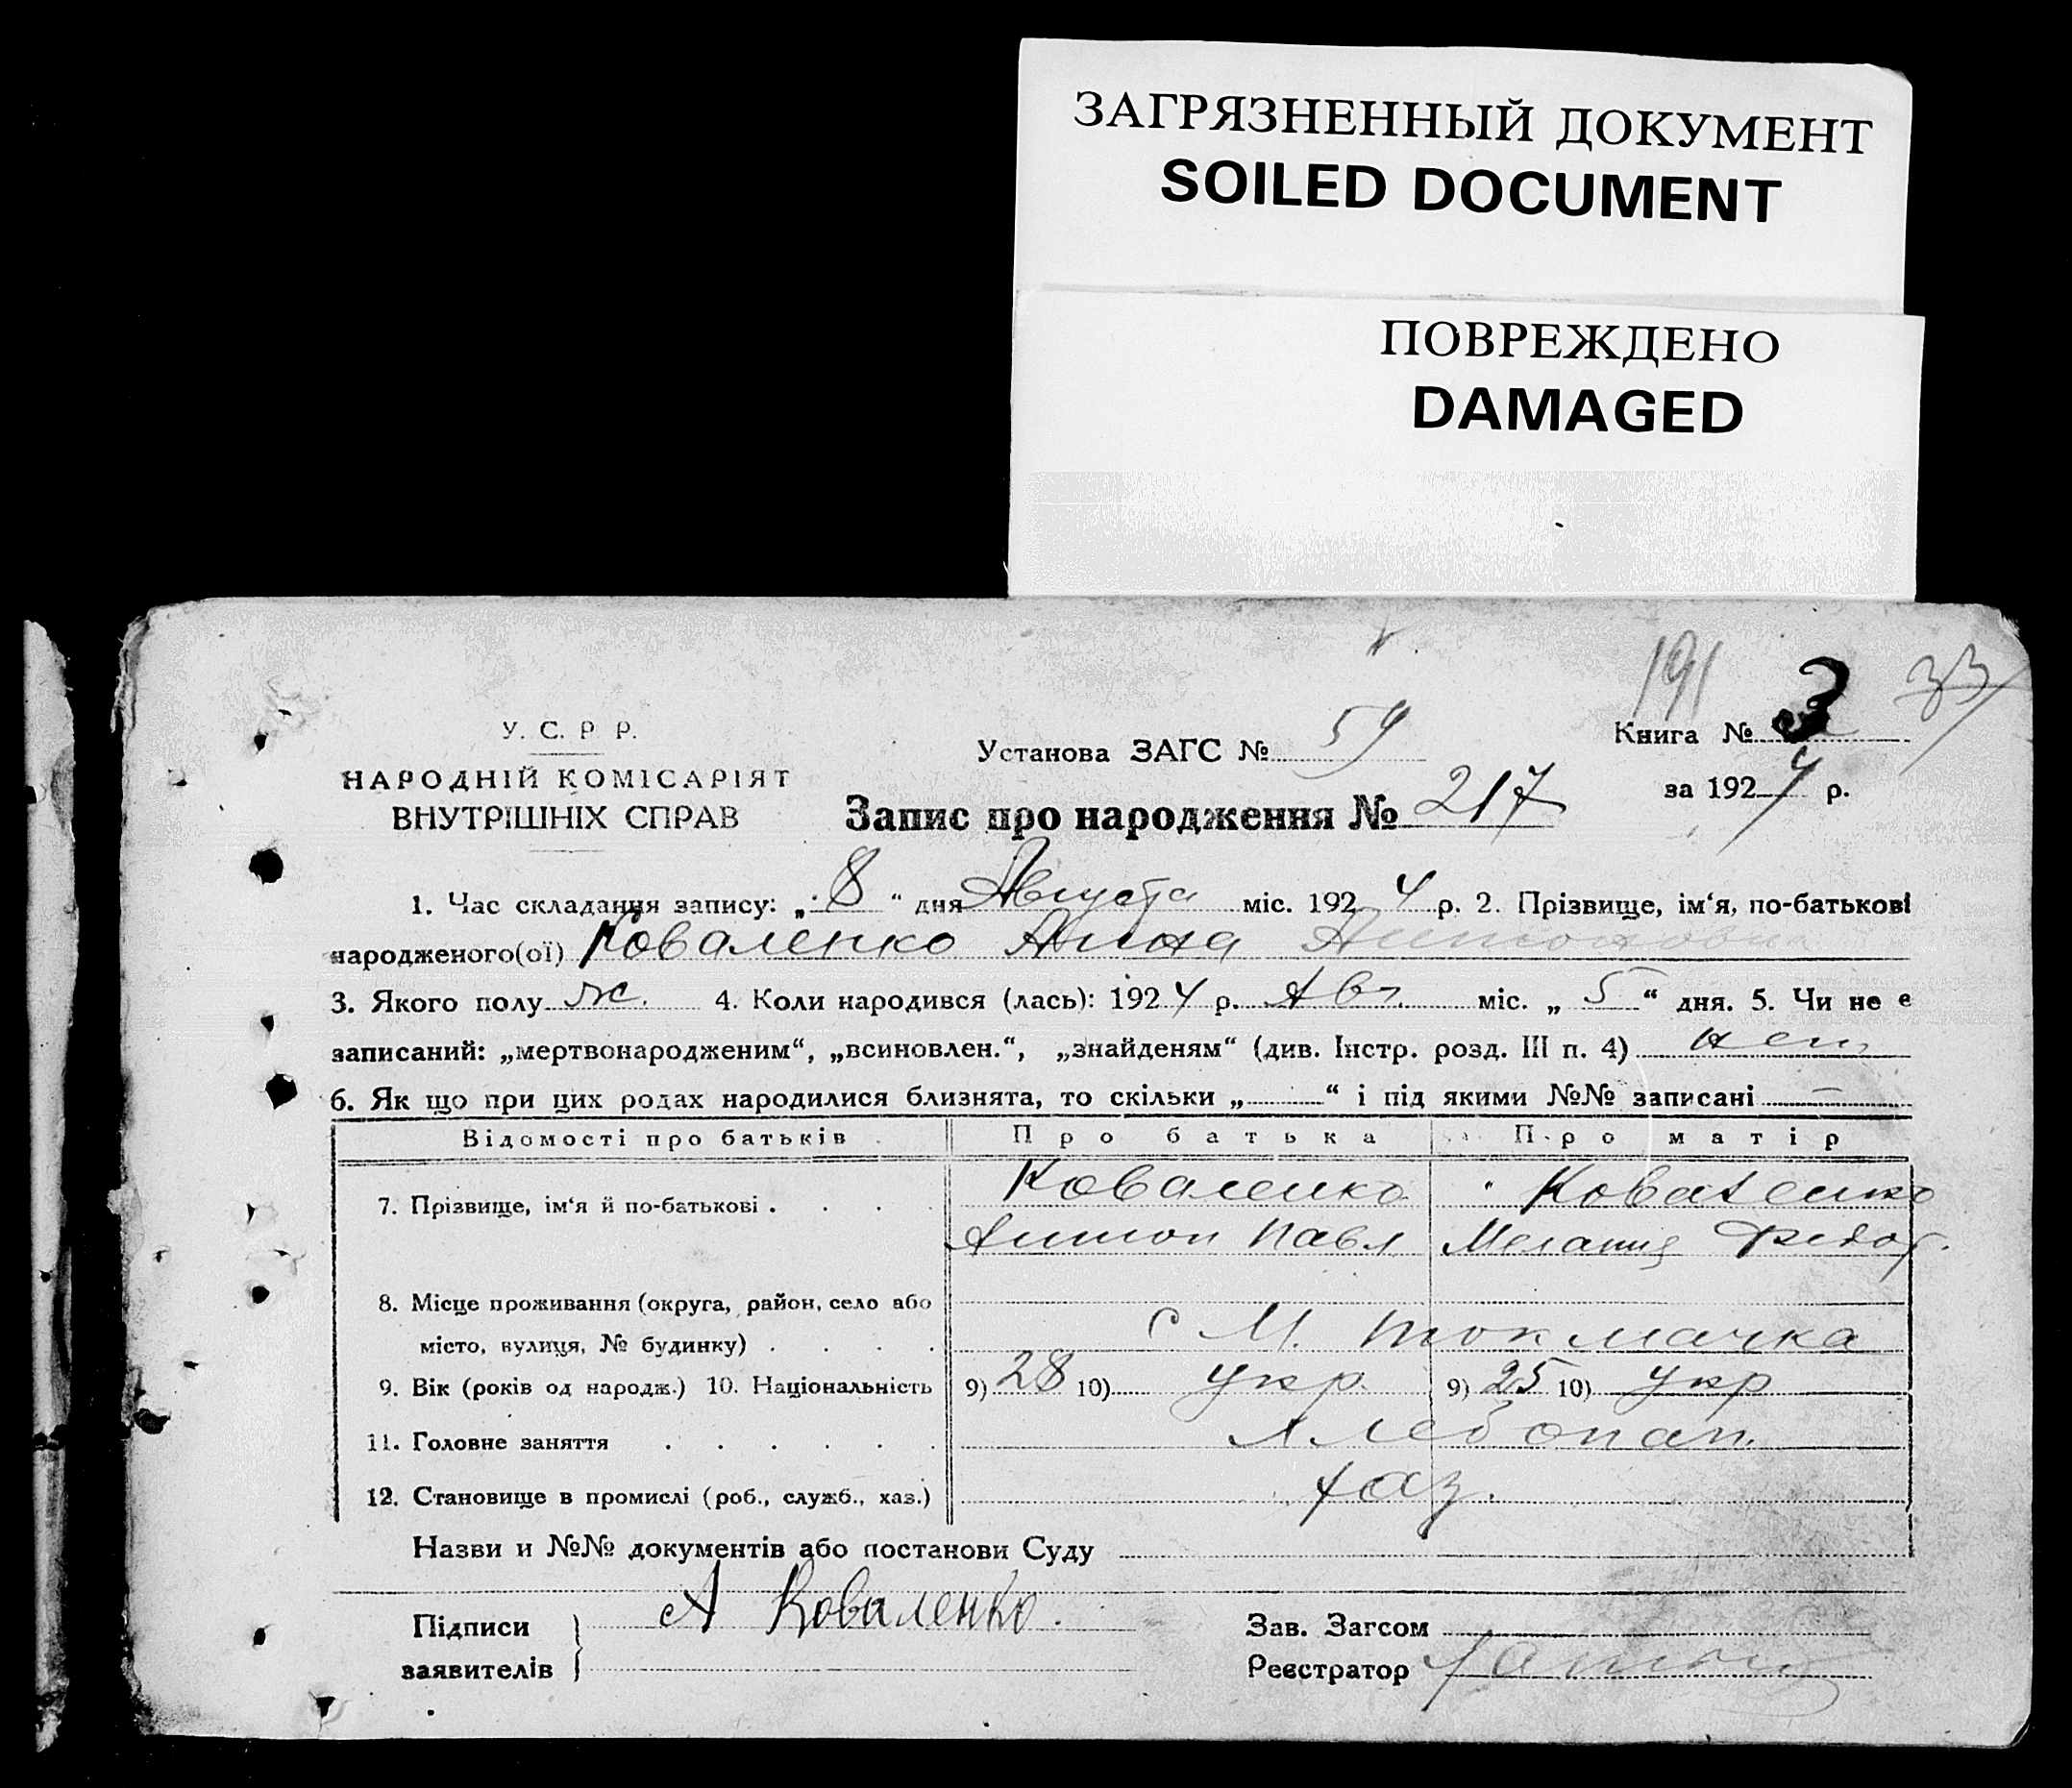 ЗАГРЯЗНЕННЫЙ ДОКУМЕНТ
SOILED DOCUMENT
ПОВРЕЖДЕНО
DAMAGED
191 3 33
У. С. Р Р.
НАРОДНІЙ КОМІСАРІЯТ
ВНУТРІШНІХ СПРАВ
Установа ЗАГС № 59
Книга № 3
за 1924 р.
Запис про народження № 217
1. Час складання запису: „ 8 “ дня Августа міс. 1924 р. 2. Прізвище, ім‘я, по-батькові
народженого(ої) Коваленко Анна Антоновна
3. Якого полу ж. 4. Коли народився (лась): 1924 р. Авг. міс. „ 5 “ дня. 5. Чи не є
записаний: „мертвонародженим“, „всиновлен.“, „знайденям“ (див. Інстр. розд. III п. 4) нет
6. Як що при цих родах народилися близнята, то скільки „ “ і під якими №№ записані —
Відомості про батьків Про батька Про матір
7. Прізвище, ім‘я й по-батькові . . . . Коваленко Коваленко
Антон Павл Мелания Федор.
8. Місце проживання (округа, район, село або
місто, вулиця, № будинку) . . . . с М. Токмачка
9. Вік (років од народж.) 10. Національність 9) 28 10) укр. 9) 25 10) укр
11. Головне заняття . . . . . . хлебопаш.
12. Становище в промислі (роб., служб., хаз.) хаз.
Назви и №№ документів або постанови Суду
Підписи
заявителів
А Коваленко.
Зав. Загсом
Реєстратор